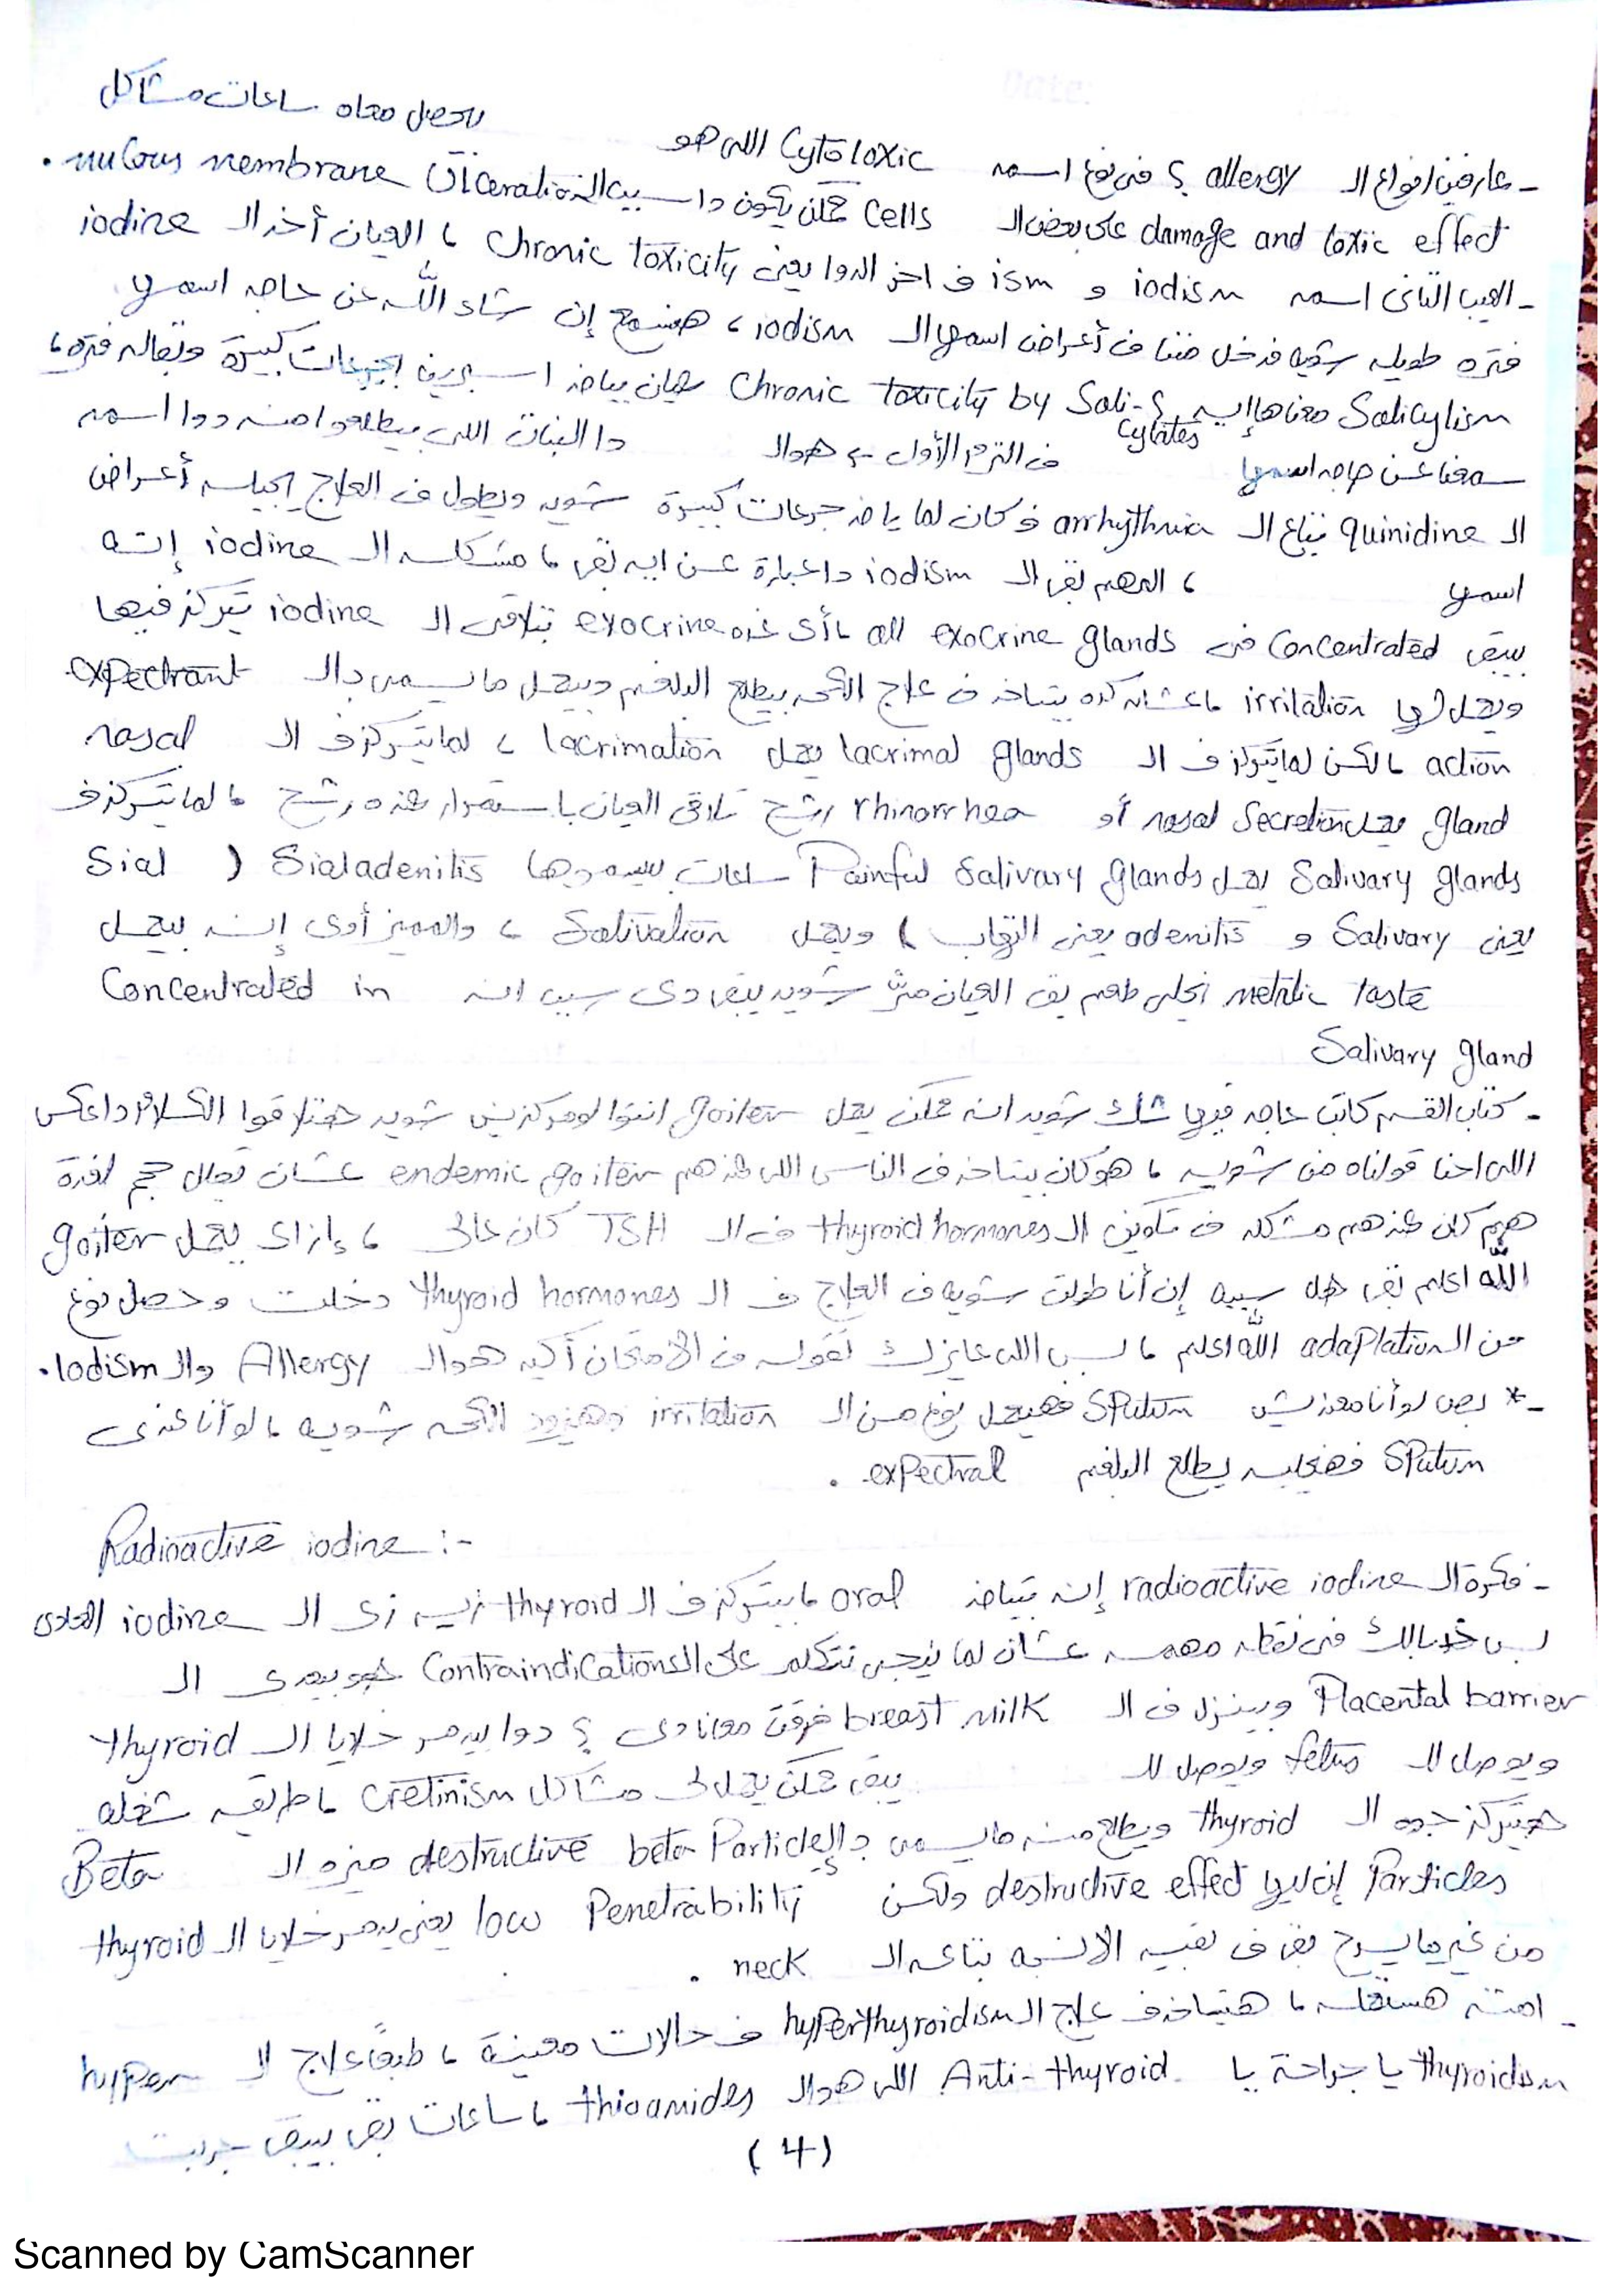 - عارفين انواع الـ allergy ؟ فى نوع اسمه Cytotoxic اللى هو بيحصل معاه ساعات مشاكل
damage and toxic effect على بعض الـ Cells ممكن يكون دا سبب الـ ulceration mucous membrane .
- العيب التانى اسمه iodism و ism ف اخر الدوا يعنى Chronic toxicity ، العيان أخد الـ iodine
فتره طويله شويه فدخل مننا فى أعراض اسمها الـ iodism ، هنسمع إن شاء الله عن حاجه اسمها
Salicylism معناها إيه ؟ Chronic toxicity by Sali-cylates عيان بياخد اسبرين بجرعات كبيرة وبقاله فتره ،
سمعنا عن حاجه اسمها فى الترم الأول ؟ هوالـ دا النبات اللى بيطلعوا منه دوا اسمه
الـ quinidine بتاع الـ arrhythmia فكان لما ياخد جرعات كبيرة شويه ويطول ف العلاج يجيله أعراض
اسمها ، المهم بقى الـ iodism دا عبارة عن ايه بقى ، مشكله الـ iodine إنه
بيبقى Concentrated فى all exocrine glands ، أى غده exocrine بتلاقى الـ iodine يتركز فيها
ويعمل لها irritation ، عشان كده بيتاخد ف علاج الكحه بيطلع البلغم وبيعمل ما يسمى بالـ expectrant
action ، لكن لما يتركز ف الـ lacrimal glands يعمل lacrimation ، لما يتركز ف الـ nasal
gland يعمل nasal Secretion أو rhinorrhea رشح تلاقى العيان باستمرار عنده رشح ، لما يتركز ف
Salivary glands يعمل Painful Salivary glands ساعات بيسموها Sialadenitis ( Sial
يعنى Salivary و adenitis يعنى التهاب ) ويعمل Salivation ، والمميز أوى إنه بيعمل
metalic taste يخلى طعم بق العيان مر شويه يبقى دى سبب انه Concentrated in
Salivary gland
- كتاب القسم كاتب حاجه فيها شك شويه انه ممكن يعمل goiter انتوا لو مركزين شويه هتلاقوا الكلام دا عكس
اللى احنا قولناه من شويه ، هو كان بيتاخد ف الناس اللى عندهم endemic goiter عشان تقلل حجم الغدة
هم كان عندهم مشكله ف تكوين الـ thyroid hormones ف الـ TSH كان عالى ، إزاى يعمل goiter
الله اعلم بقى هل سببه إن أنا طولت شويه ف العلاج ف الـ thyroid hormones دخلت وحصل نوع
من الـ adaptation الله اعلم ، بس اللى عايزك تقوله ف الامتحان أكيد هوالـ Allergy والـ Iodism .
-* بص لو أنا معنديش Sputum فهيعمل نوع من الـ irritation وهيزود الكحه شويه ، لو أنا عندى
Sputum فهيخليه يطلع البلغم expectral .
Radioactive iodine :-
- فكرة الـ radioactive iodine إنه بيتاخد oral ، بيتركز ف الـ thyroid زيه زى الـ iodine العادى
بس خد بالك فى نقطه مهمه عشان لما نيجى نتكلم على الـ Contraindications هو بيعدى الـ
Placental barrier وبينزل ف الـ breast milk فرقت معانا دى ؟ دوا بيدمر خلايا الـ thyroid
ويوصل للـ fetus ويوصل للـ يبقى ممكن يعمل لى مشاكل cretinism ، طريقه شغله
هيتركز جوه الـ thyroid ويطلع منه ما يسمى بالـ destructive beta Particles ميزه الـ Beta
Particles إن ليها destructive effect ولكن low Penetrability يعنى يدمر خلايا الـ thyroid
من غير ما يسرح بقى ف بقيه الانسجه بتاعه الـ neck .
- امتى هستعمله ، هيتاخد ف علاج الـ hyperthyroidism ف حالات معينة ، طبعاً علاج الـ hyper
thyroidism يا جراحة يا Anti-thyroid اللى هوالـ thioamides ، ساعات بقى بيبقى جربت
(4)
Scanned by CamScanner